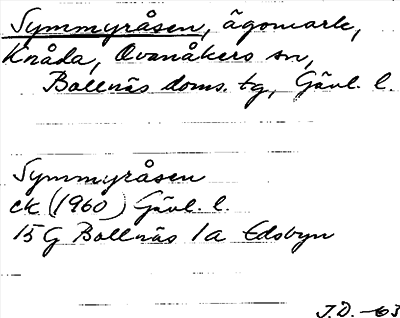 Symmyråsen, ägomark,
Knåda, Ovanåkers sn,
Bollnäs doms. tg, Gävl. l.
Symmyråsen
ek (1960) Gävl. l.
15 G Bollnäs 1a Edsbyn
J.D. -63